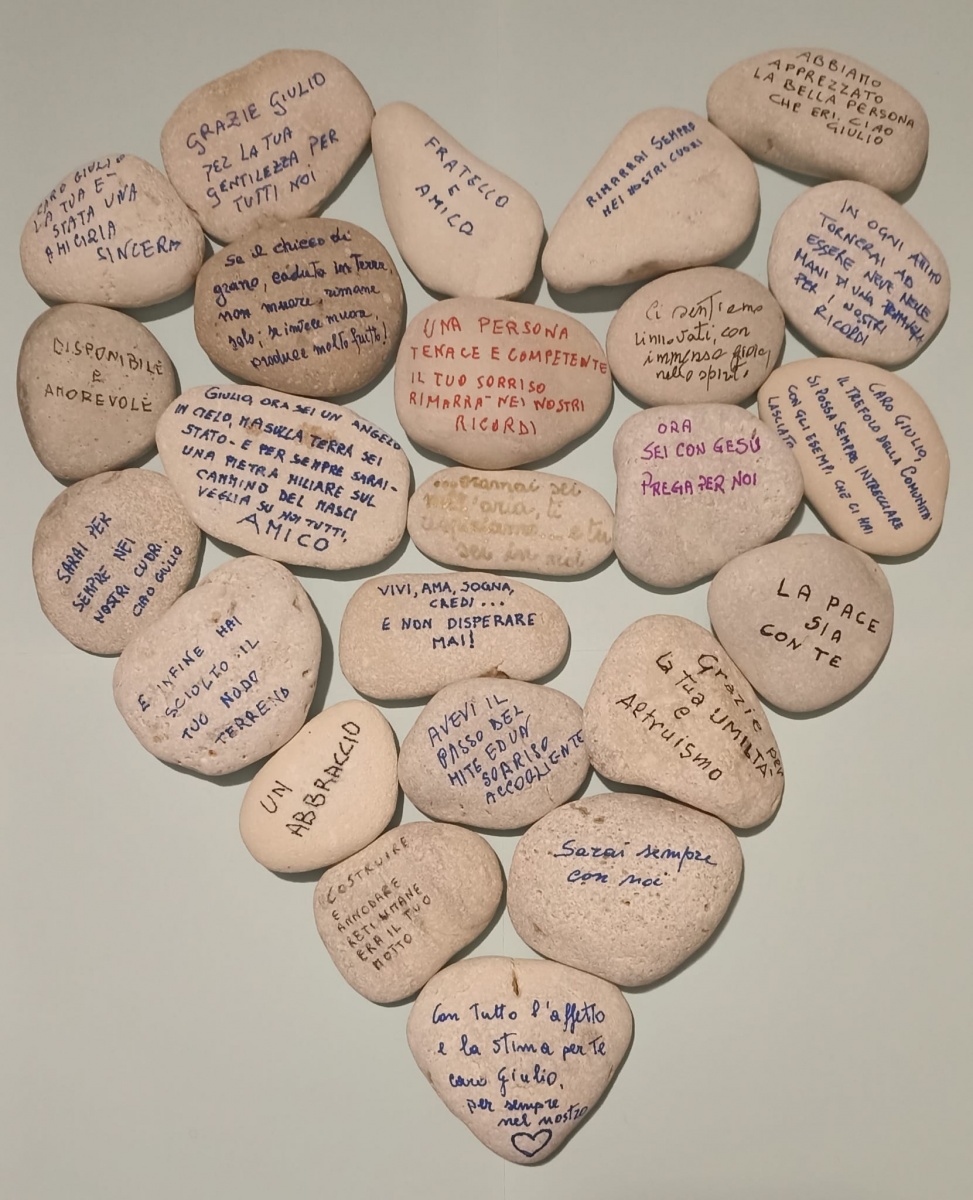 GRAZIE GIULIO
PER LA TUA
GENTILEZZA PER
TUTTI NOI
ABBIAMO
APPREZZATO
LA BELLA PERSONA
CHE ERI. CIAO
GIULIO
CARO GIULIO
LA TUA E'
STATA UNA
AMICIZIA
SINCERA
FRATELLO
E
AMICO
RIMARRAI SEMPRE
NEI NOSTRI CUORI
IN OGNI ATTIMO
TORNERAI AD
ESSERE NEVE NELLE
MANI DI UNA
PER I NOSTRI
RICORDI
Se il chicco di
grano, caduto in Terra,
non muore, rimane
solo; se invece muore,
produce molto frutto!
UNA PERSONA
TENACE E COMPETENTE
IL TUO SORRISO
RIMARRA' NEI NOSTRI
RICORDI
Ci sentiamo
rinnovati, con
immensa gioia,
nello spirito.
DISPONIBILE
E
AMOREVOLE
GIULIO, ORA SEI UN ANGELO
IN CIELO, MA SULLA TERRA SEI
STATO - E PER SEMPRE SARAI -
UNA PIETRA MILIARE SUL
CAMMINO DEL MASCI
VEGLIA SU NOI TUTTI,
AMICO
ORA
SEI CON GESÙ
PREGA PER NOI
CARO GIULIO,
IL TREFOLO DELLA COMUNITÀ
SI POSSA SEMPRE INTRECCIARE
CON GLI ESEMPI CHE CI HAI
LASCIATO
...oramai sei
nell'aria, ti
respiriamo... e tu
sei in noi
SARAI PER
SEMPRE NEI
NOSTRI CUORI.
CIAO GIULIO
VIVI, AMA, SOGNA,
CREDI...
E NON DISPERARE
MAI!
LA PACE
SIA
CON TE
E INFINE HAI
SCIOLTO IL
TUO NODO
TERRENO
AVEVI IL
PASSO DEL
MITE ED UN
SORRISO
ACCOGLIENTE
Grazie per
la tua UMILTA'
e
Altruismo
UN
ABBRACCIO
Sarai sempre
con noi
COSTRUIRE
E
ANNODARE
RETI UMANE
ERA IL TUO
MOTTO
Con Tutto l'affetto
e la stima per te
caro Giulio,
per sempre
nel nostro